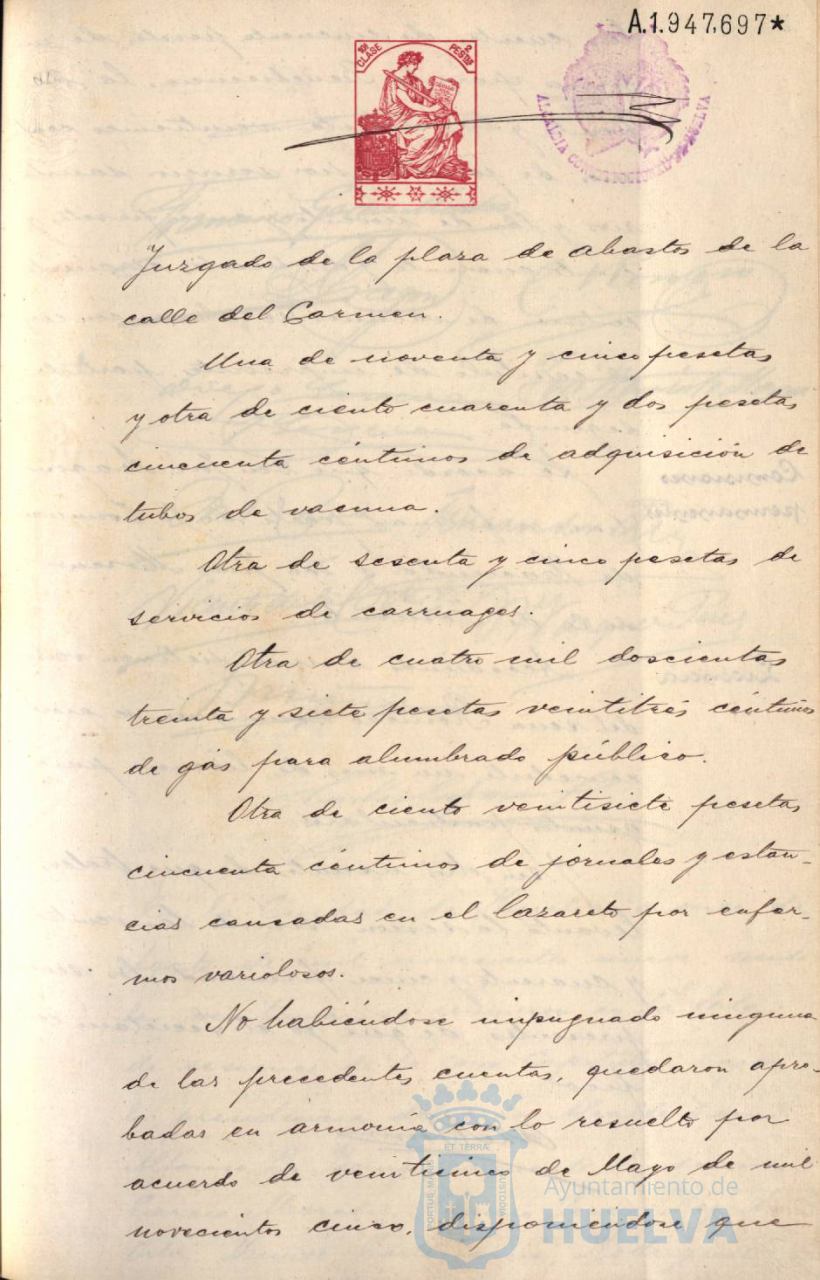 A.1.947.697*
10ª CLASE 2 PESETAS
ALCALDIA CONSTITUCIONAL HUELVA
Juzgado de la plaza de abastos de la
calle del Carmen.
Una de noventa y cinco pesetas
y otra de ciento cuarenta y dos pesetas
cincuenta céntimos de adquisición de
tubos de vacuna.
Otra de sesenta y cinco pesetas de
servicios de carruages.
Otra de cuatro mil doscientas
treinta y siete pesetas veintitrés céntimos
de gás para alumbrado público.
Otra de ciento veintisiete pesetas
cincuenta céntimos de jornales y estan-
cias causadas en el lazareto por enfer-
mos variolosos.
No habiéndose impugnado ninguna
de las precedentes cuentas, quedaron apro-
badas en armonía con lo resuelto por
acuerdo de veinticinco de Mayo de mil
novecientos cinco, disponiéndose que
PORTUS MARIS ET TERRÆ CUSTODIA
Ayuntamiento de
HUELVA